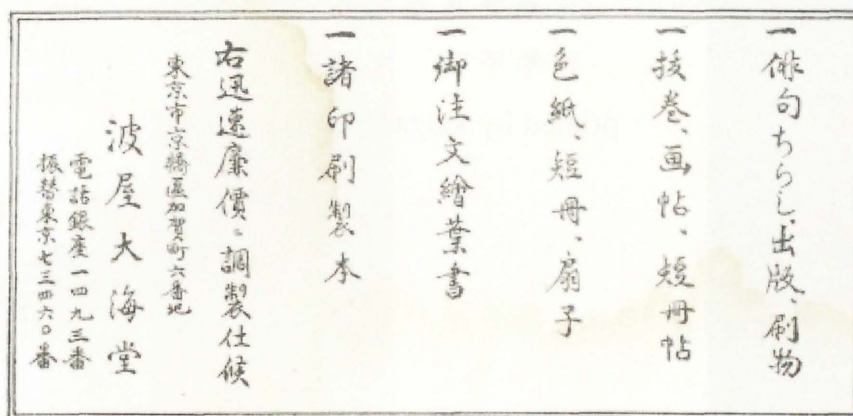 一俳句ちらし、出版、刷物
一抜巻、画帖、短冊帖
一色紙、短冊、扇子
一御注文繪葉書
一諸印刷製本
右迅速廉價ニ調製仕候
東京市京橋區加賀町六番地
波屋大海堂
電話銀座一四九三番
振替東京七三四六〇番